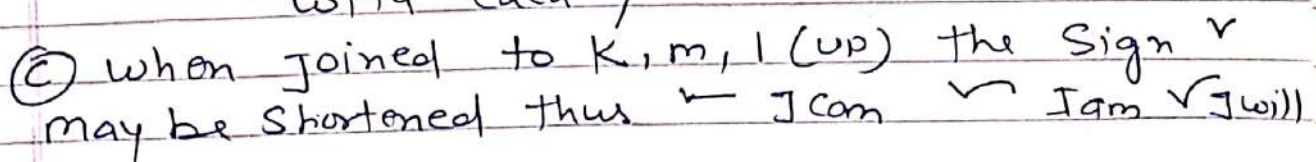 Ⓒ when Joined to K, m, l (up) the Sign
may be Shortened thus I can I am I will